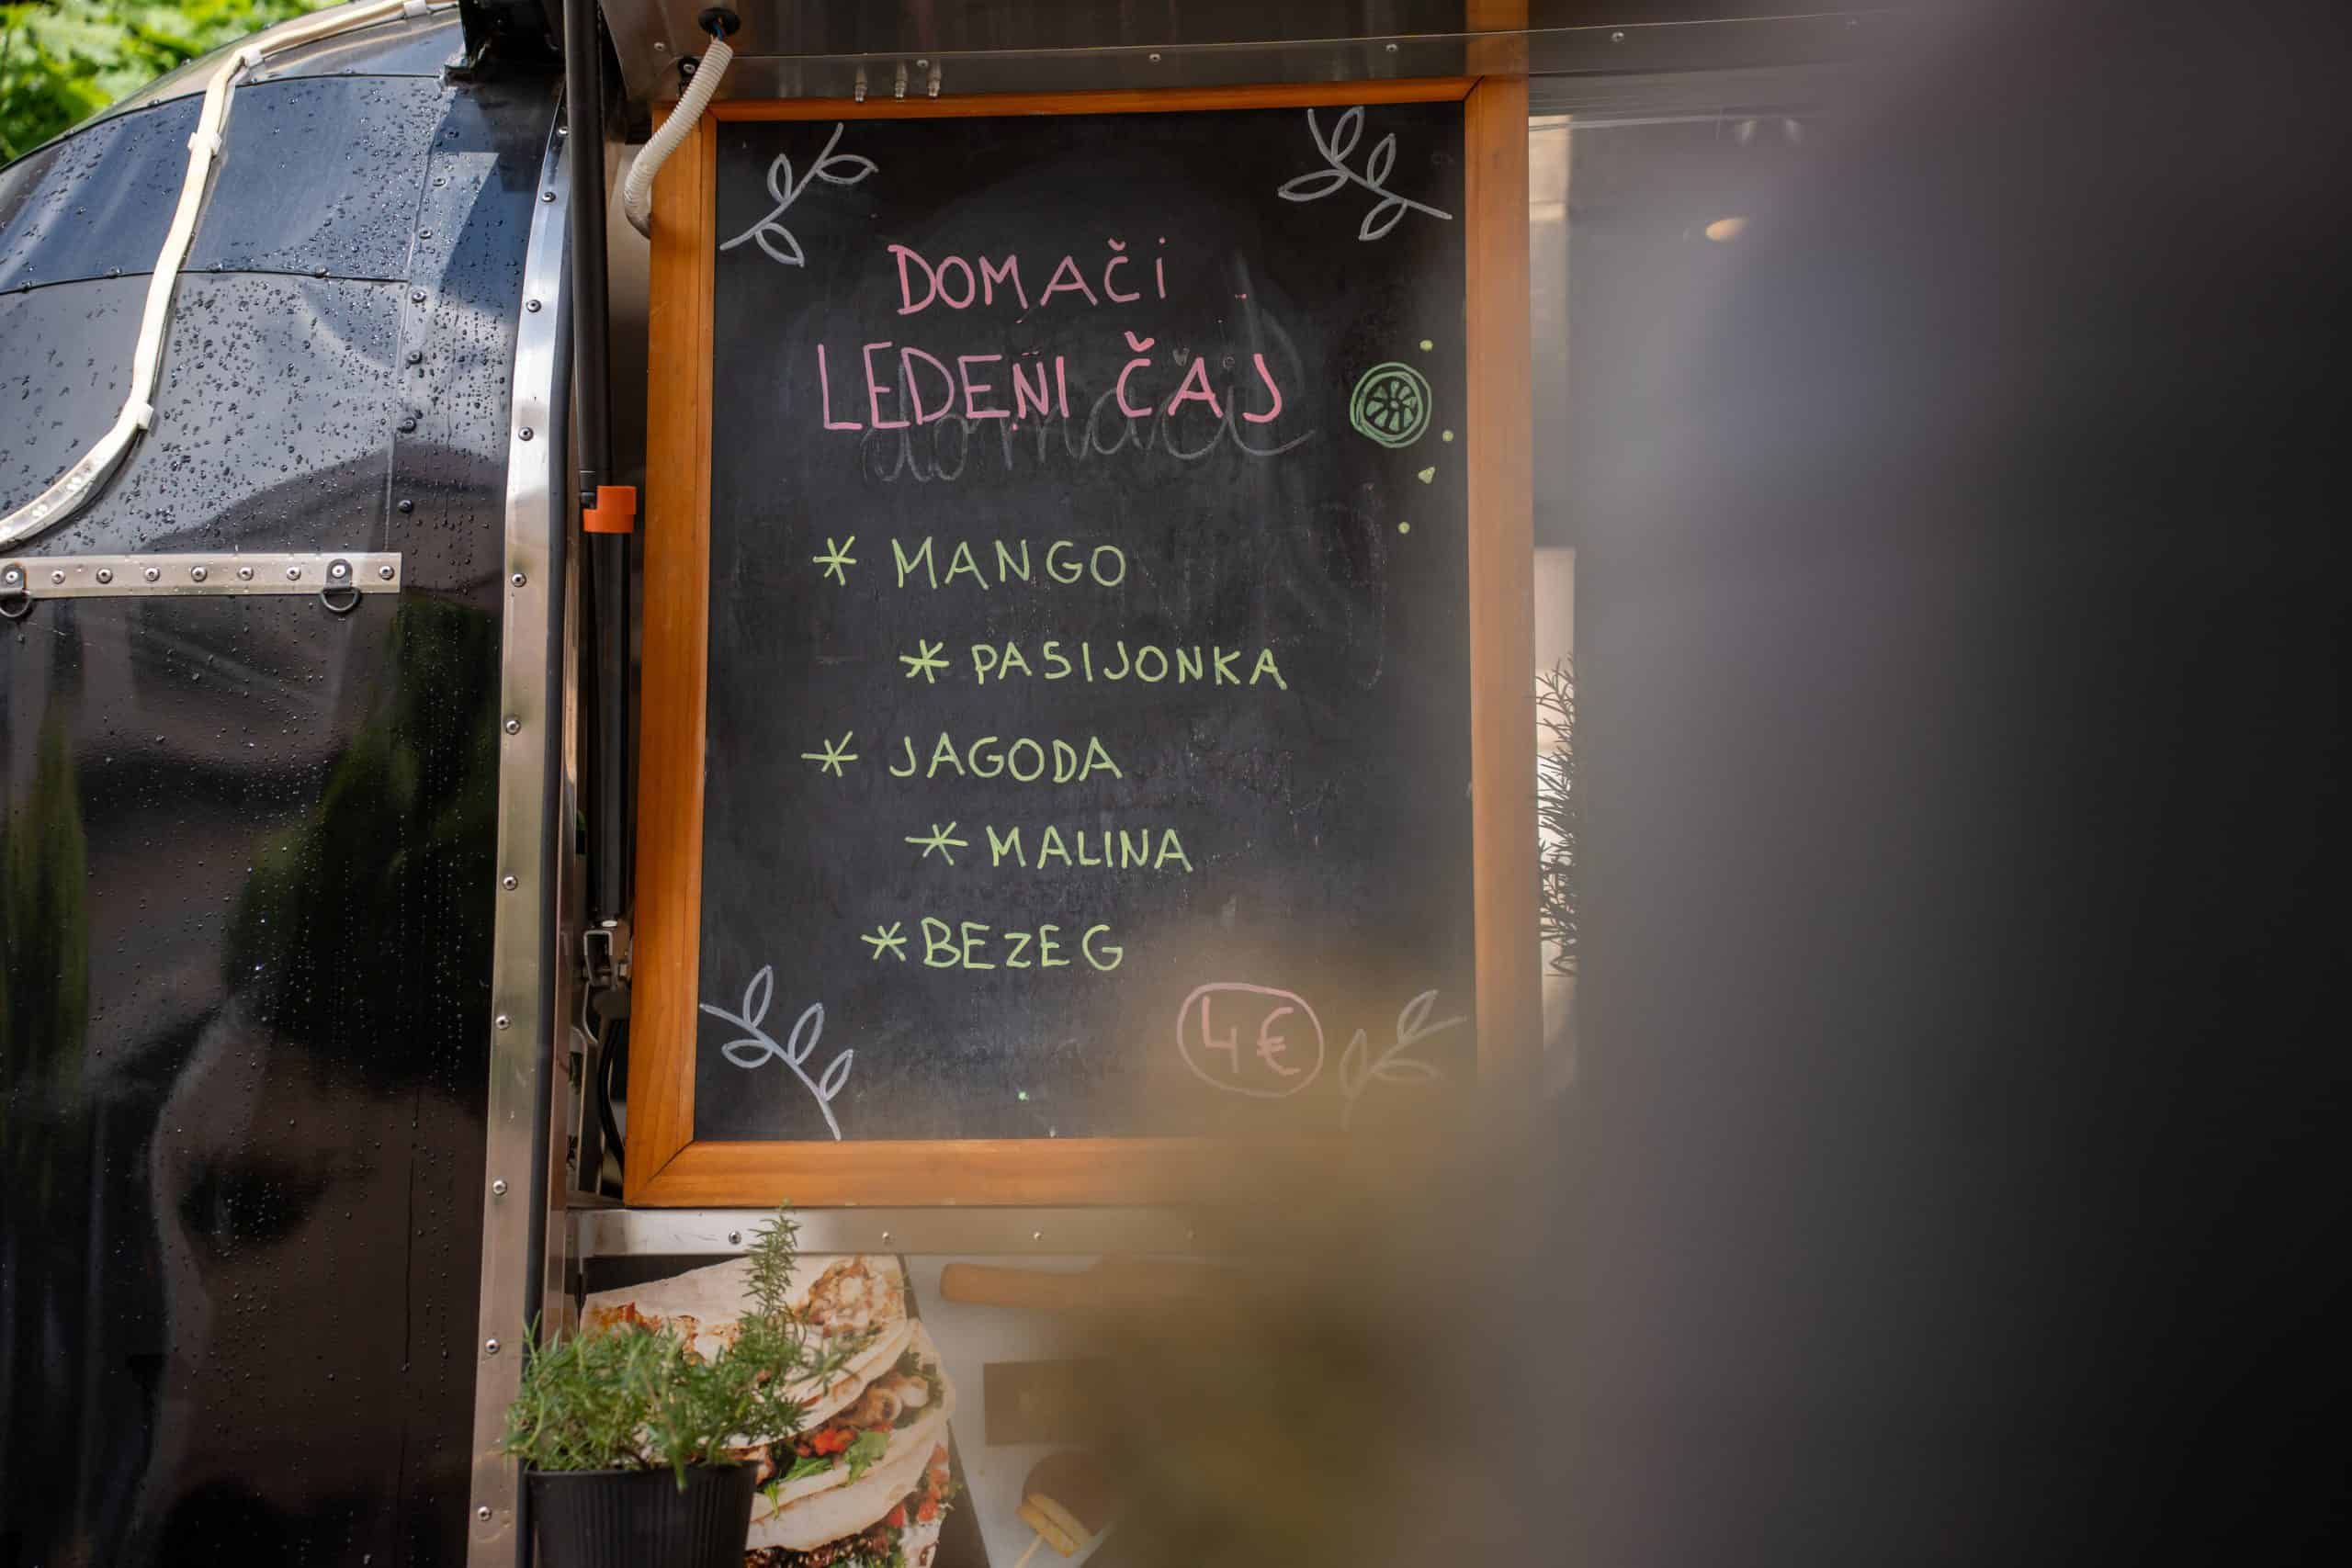 DOMAČI
LEDENI ČAJ
domači
* MANGO
* PASIJONKA
* JAGODA
* MALINA
* BEZEG
4€